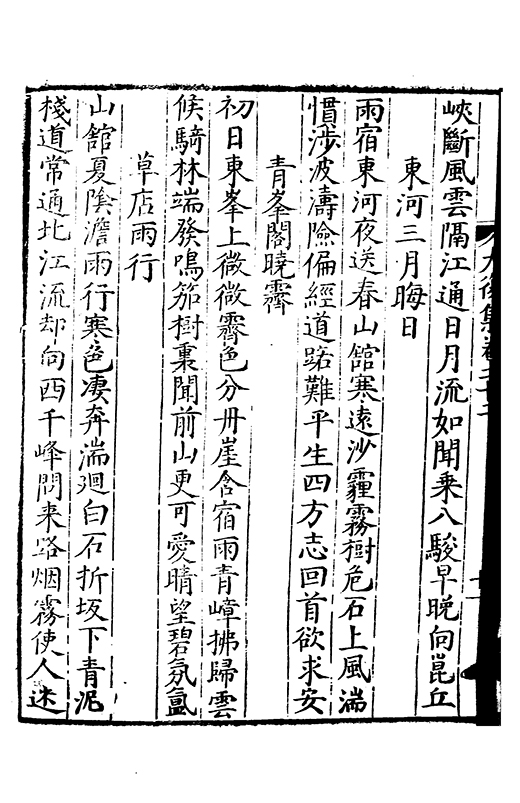 峽斷風雲隔江通日月流如聞乘八駿早晚向崑丘
東河三月晦日
雨宿東河夜送春山館寒遠沙霾霧樹危石上風湍
慣涉波濤險偏經道路難平生四方志回首欲求安
青峯閣曉霽
初日東峯上微微霽色分丹崖含宿雨青嶂拂歸雲
候騎林端發鳴笳樹裏聞前山更可愛晴望碧氛氳
草店雨行
山館夏陰澹雨行寒色凄奔湍廻白石折坂下青泥
棧道常通北江流却向西千峰問来路烟霧使人迷